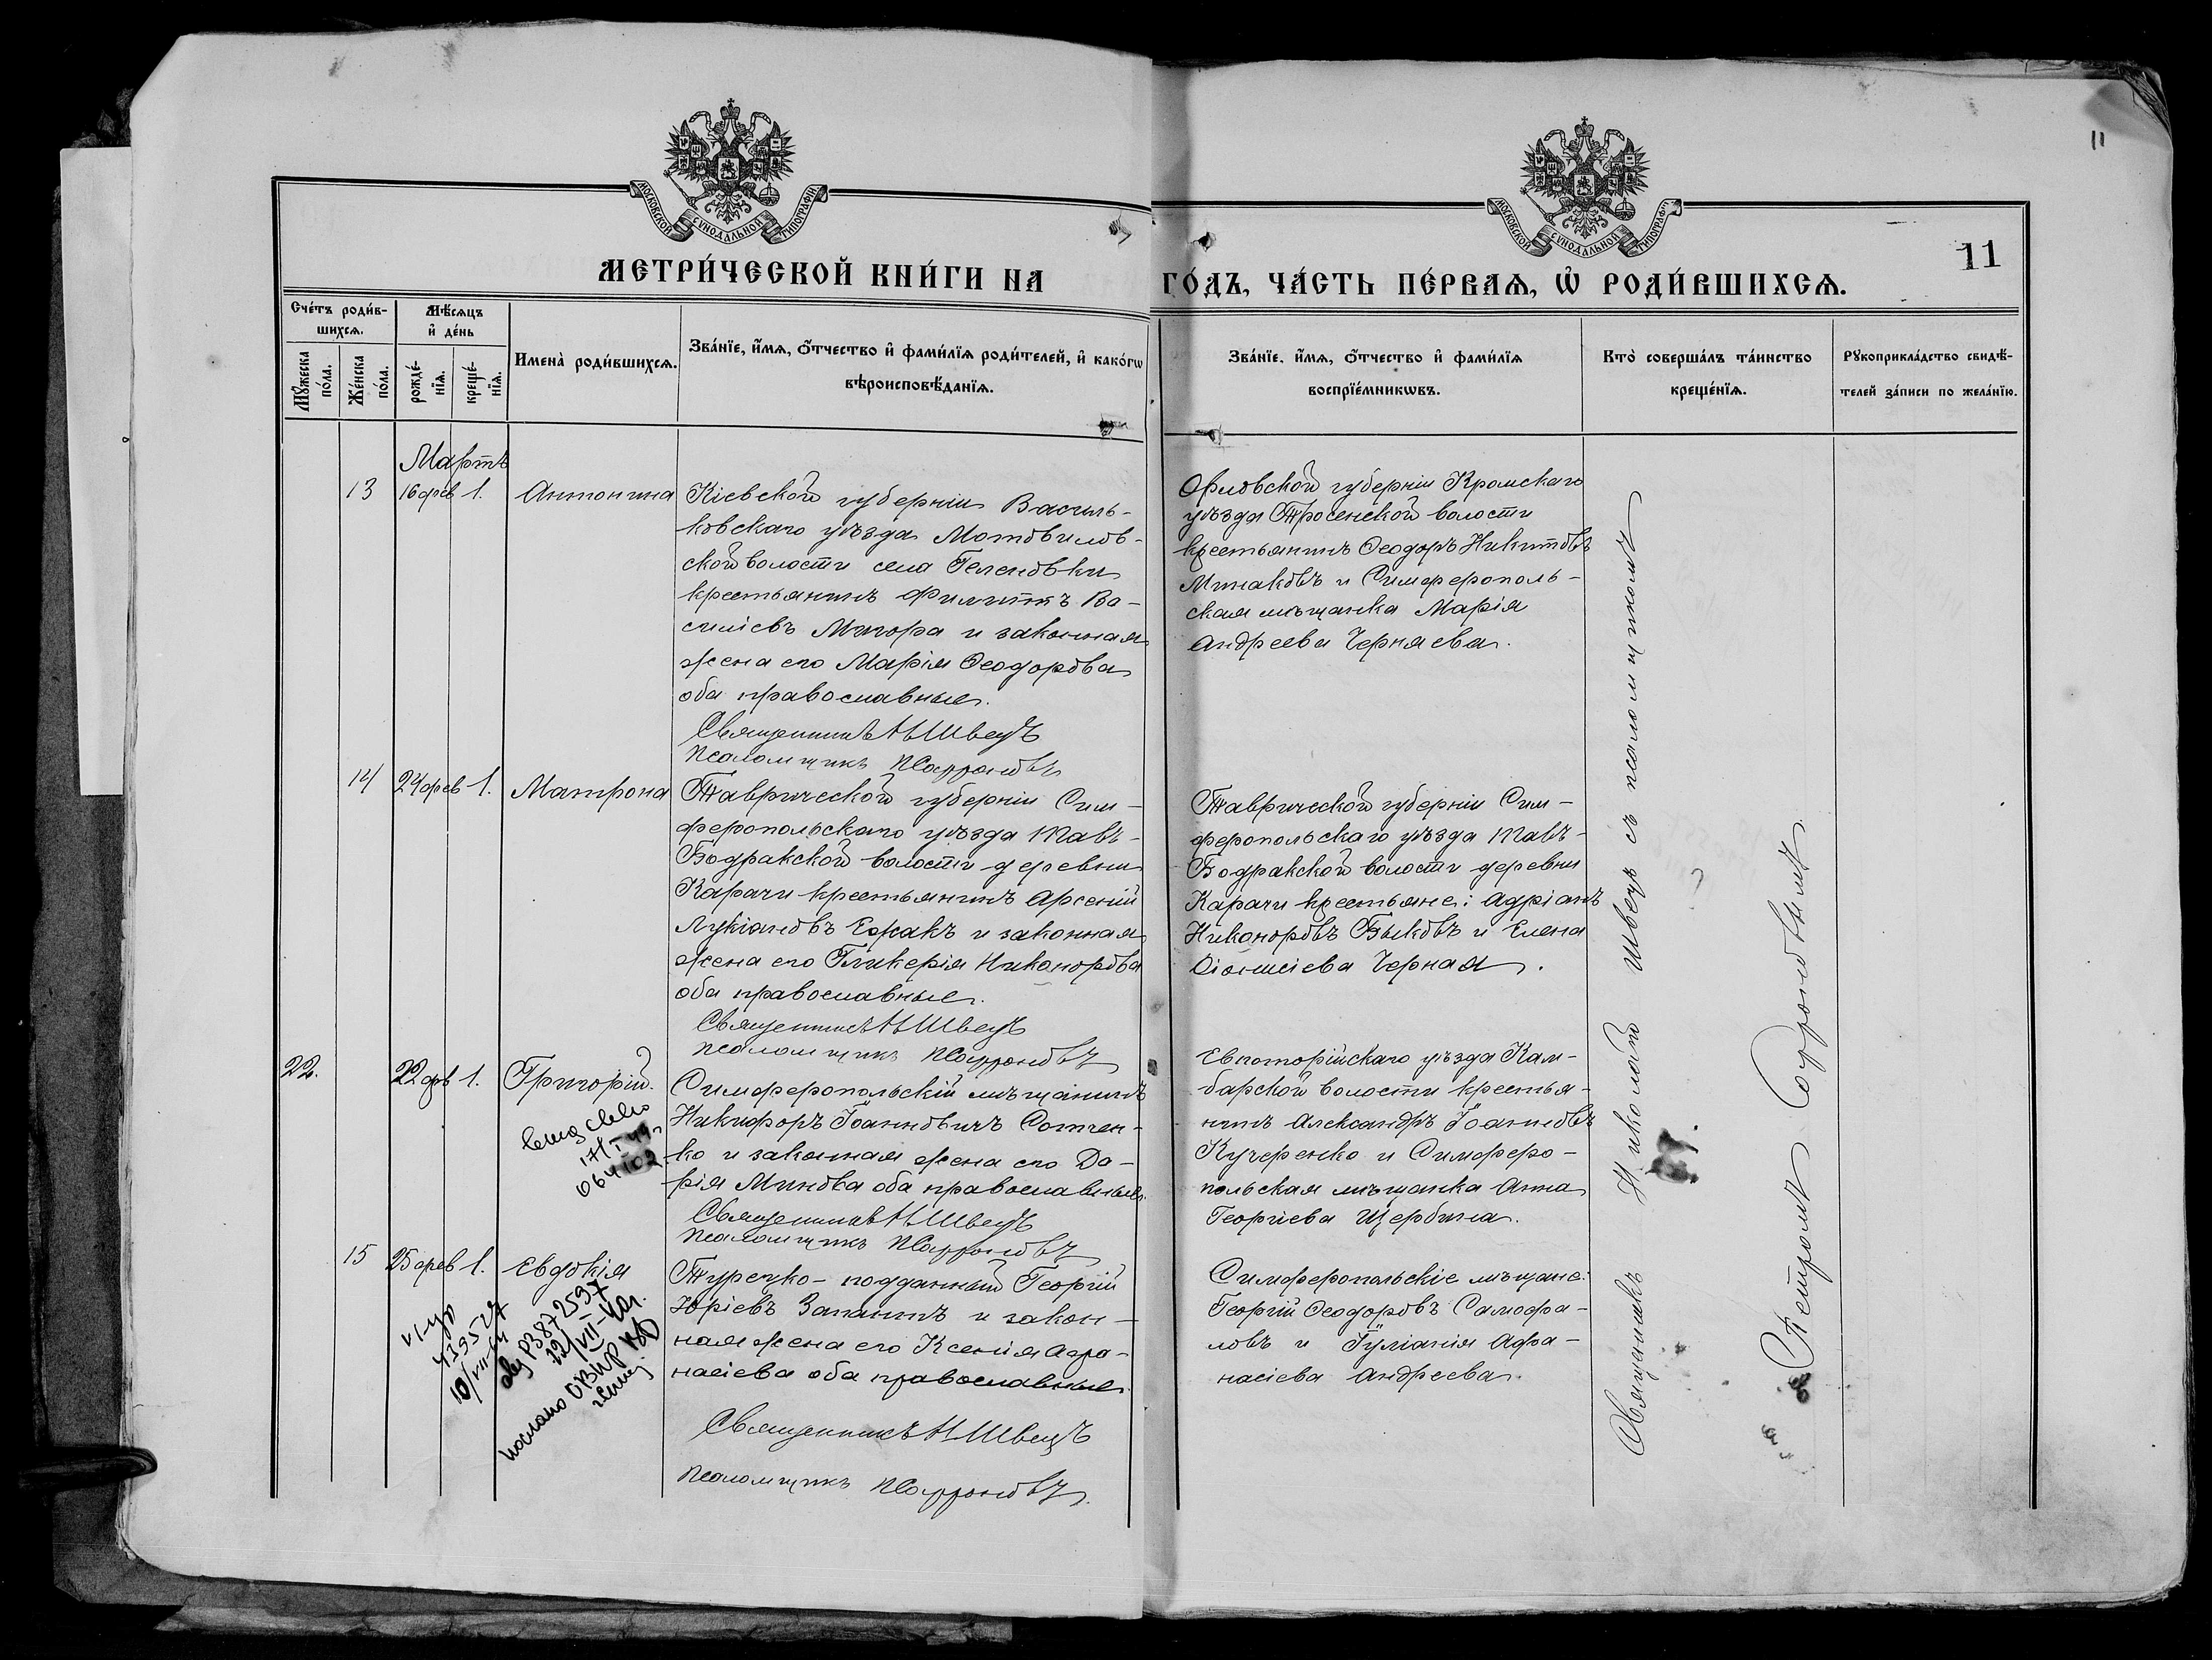 11
МОСКОВСКОЙ СѴНОДАЛЬНОЙ ТИПОГРАФІИ
МОСКОВСКОЙ СѴНОДАЛЬНОЙ ТИПОГРАФІИ
11
МЕТРИ́ЧЕСКОЙ КНИ́ГИ НА
ГО́ДЪ, ЧА́СТЬ ПЕ́РВАЯ, Ѡ҆ РОДИ́ВШИХСЯ.
Сче́тъ роди́в-
шихся.
Мꙋ́жеска
по́ла.
Же́нска
по́ла.
Мѣ́сяцъ
и҆ де́нь
рожде́-
нїя.
креще́-
нїя.
Имена̀ роди́вшихся.
Зва́нїе, и҆́мя, ѻ҆́тчество и҆ фами́лїя роди́телей, и҆ како́гѡ
вѣроисповѣ́данїя.
Зва́нїе, и҆́мя, ѻ҆́тчество и҆ фами́лїя
воспрїе́мникѡвъ.
Кто̀ соверша́лъ та́инство
креще́нїя.
Рꙋкоприкла́дство свидѣ́-
телей за́писи по жела́нїю.
Мартъ
13
16 фев
1.
Антонина
Кіевской губерніи Василь-
ковскаго уѣзда Мотовилов-
ской волости села Геленовки
крестьянинъ Филиппъ Ва-
силіевъ Мигора и законная
жена его Марія Ѳеодорова
оба православные.
Священникъ Н Швецъ
Псаломщикъ П Софроновъ
Орловской губерніи Кромскаго
уѣзда Тросенской волости
крестьянинъ Ѳеодоръ Никитовъ
Минаковъ и Симферополь-
ская мѣщанка Марія
Андреева Черняева.
14
24 фев
1.
Матрона
Таврической губерніи Сим-
феропольскаго уѣзда Тавъ-
Бодракской волости деревни
Карачи крестьянинъ Арсеній
Лукіановъ Ежакъ и законная
жена его Гликерія Никонорова
оба православные.
Священникъ Н Швецъ
Псаломщикъ П Софроновъ
Таврической губерніи Сим-
феропольскаго уѣзда Тавъ-
Бодракской волости деревни
Карачи крестьяне: Адріанъ
Никоноровъ Быковъ и Елена
Діонисіева Черная.
22.
22 фв
1.
Григорій.
064102
Симферопольскій мѣщанинъ
Никифоръ Іоанновичъ Сотчен-
ко и законная жена его Да-
рія Минова оба православные.
Священникъ Н Швецъ
Псаломщикъ П Софроновъ
Евпаторійскаго уѣзда Кам-
барской волости крестья-
нинъ Александръ Іоанновъ
Кучеренко и Симферо-
польская мѣщанка Анна
Георгіева Щербина.
15
25 фев
1.
Евдокія
439527
10/VII-64
РЗ872597
12/VII-64г.
послано ОВИР
Турецко-подданный Георгій
Юріевъ Запанитъ и закон-
ная жена его Ксенія Афа-
насіева оба православные.
Священникъ Н Швецъ
Псаломщикъ П Софроновъ.
Симферопольскіе мѣщане:
Георгій Ѳеодоровъ Самофа-
ловъ и Іуліанія Афа-
насіева Андреева.
Священникъ Николай Швецъ съ псаломщикомъ
Петромъ Софроновымъ.